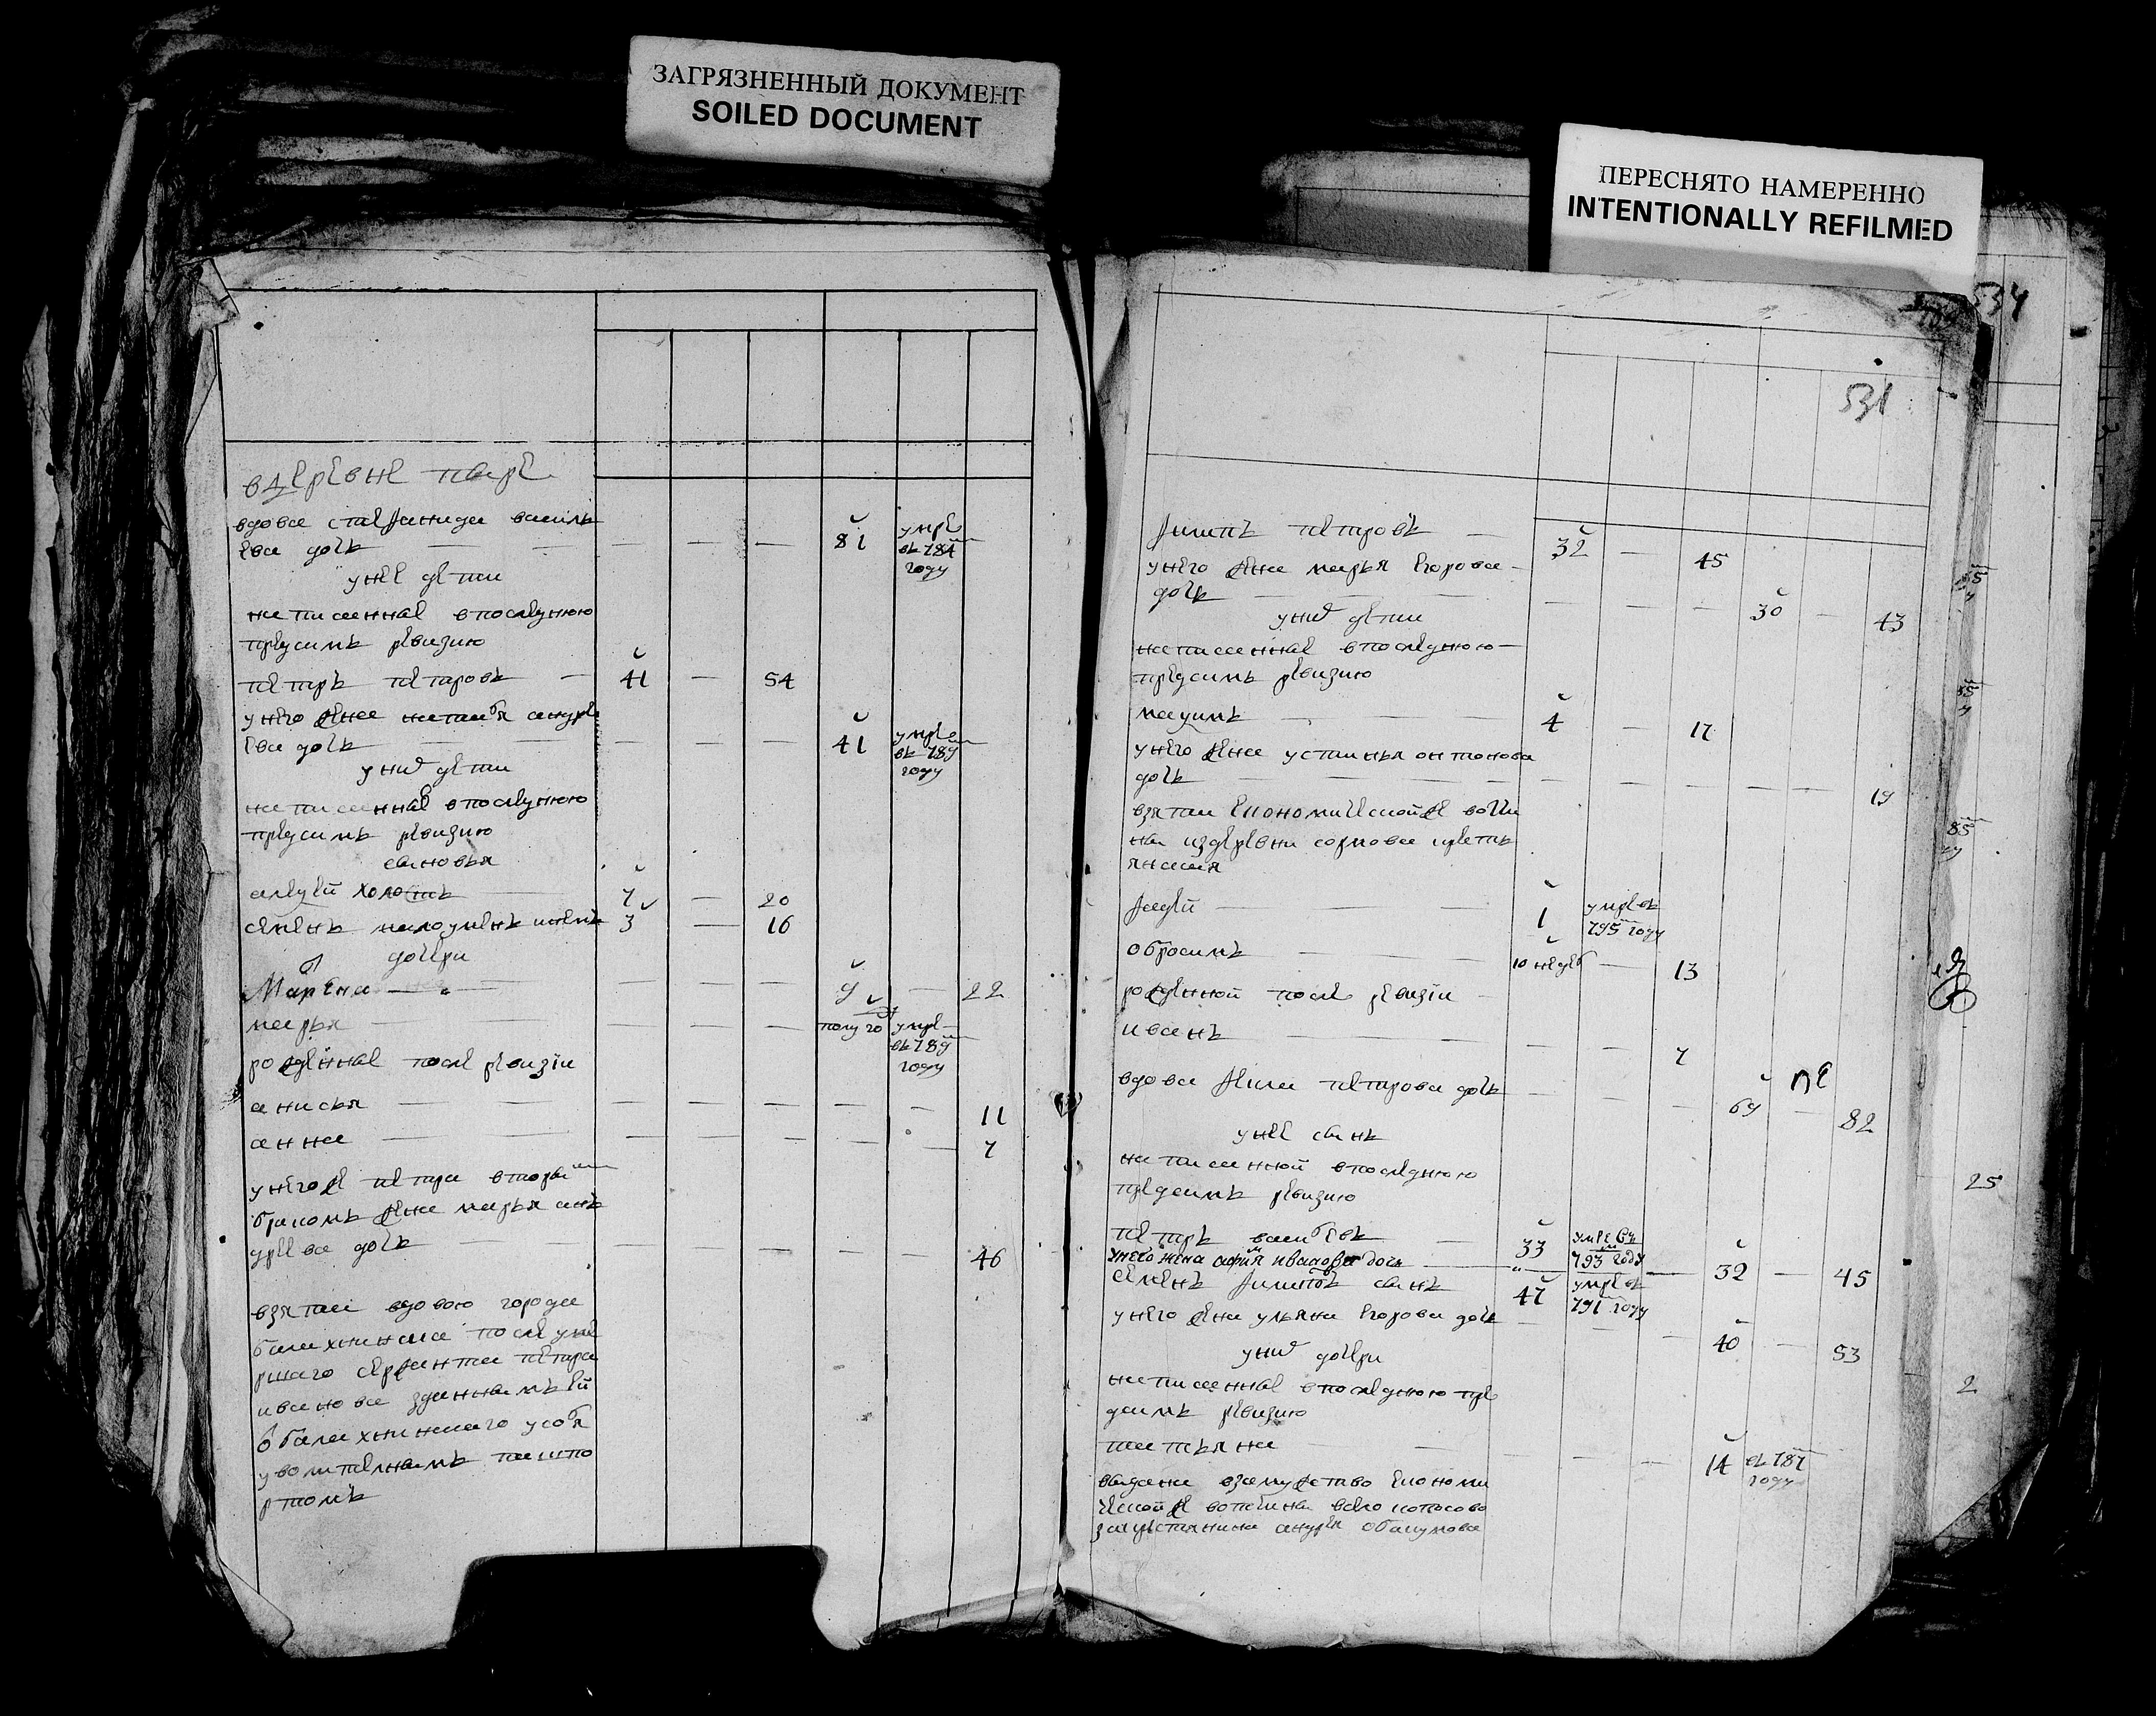 ЗАГРЯЗНЕННЫЙ ДОКУМЕНТ
SOILED DOCUMENT
ПЕРЕСНЯТО НАМЕРЕННО
INTENTIONALLY REFILMED
534
531
вдеревне
вдова степанида василь
ева дочь — — — 81 умре в 784 году
унее дети
написанные впоследнюю
предсимъ ревизию
петръ петровъ — 41 — 54
унего жена наталья андре
ева дочь — — — 41 умре в 789 году
уних дети
написанные впоследнюю
предсимъ ревизию
сыновья
алексей холостъ 7 — 20
семенъ малоуменъ и немъ 3 — 16
дочери
Марʼена — — — 9 — 22
марья — — — полу го умре в 789 году
рожденные после ревизiи
анисья — — — — — 11
анна — — — — — 7
унегоже петра вторымъ
бракомъ жена марья анъ
дреева дочь — — — — — 46
взята вдовою города
балахнинска после уме
ршаго сержанта петра
иванова зданнымъ ей
о балахнинскаго
увольтельнымъ пашпо
ртомъ
филипъ петровъ — 32 — 45
унего жена марья егорова
дочь — — — 30 — 43
уних дети
написанные впоследнюю
предсимъ ревизию
максимъ — 4 — 17
унего жена устинья онтонова
дочь — — — — — 19
взята економическойже вотчи
ны издеревни сормова крестъ
янская
фадей — 1 умре в 795 году
обросимъ — 10 недель — 13
рожденной после ревизiи
иванъ — — — 7
вдова петрова дочь — — — 69 — 82
унее сынъ
написанной впоследнюю
предсимъ ревизию
петръ васильевъ — 33 умре въ 793 году
унего жена ивановна дочь — 32 — 45
семенъ филиповъ сынъ 47 умре в 791 году
унего жена ульяна егорова дочь — — — 40 — 53
уних дочери
написанные впоследнюю пре
дсимъ ревизию
татьяна — — — 14 в 787 году
выдана взамужство економи
ческойже вотчины всело копосово
закрестьянина андрея
85
85
85
25
2